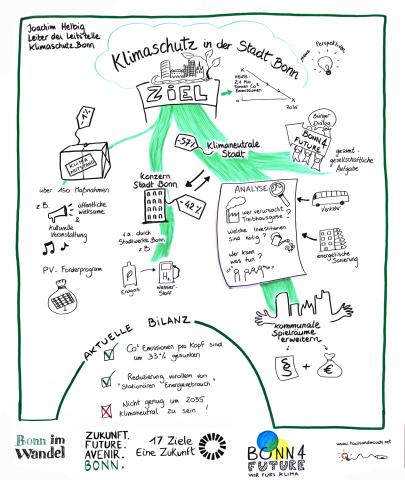 Joachim Helbig
Leiter der Leitstelle
Klimaschutz Bonn
Klimaschutz in der Stadt Bonn
ZIEL
HEUTE:
2035
neue
Perspektiven
Bürger
Dialog
BONN 4
FUTURE
gesamt-
gesellschaftliche
Aufgabe
-57%
Klimaneutrale
Stadt
KLIMA
über 150 Maßnahmen
z.B.
öffentliche
wirksame
Kulturelle
Veranstaltung
PV-Förderprogram
Konzern
Stadt Bonn
-42%
v.a. durch
Stadtwerke Bonn
z.B.
Erdgas
H₂
Wasser-
Stoff
ANALYSE
wer verursacht
Treibhausgase?
Welche Investitionen
sind nötig?
Wer kann
was tun?
Verkehr
energetische
Sanierung
kommunale
Spielräume
erweitern
§ + €
AKTUELLE BILANZ
Co² Emissionen pro Kopf sind
um 33% gesunken
Reduzierung vorallem von
"Stationären Energieverbrauch"
Nicht genug um 2035
Klimaneutral zu sein!
Bonn im
Wandel
ZUKUNFT.
FUTURE.
AVENIR.
BONN.
17 Ziele
Eine Zukunft
BONN4
FUTURE
WIR FÜRS KLIMA